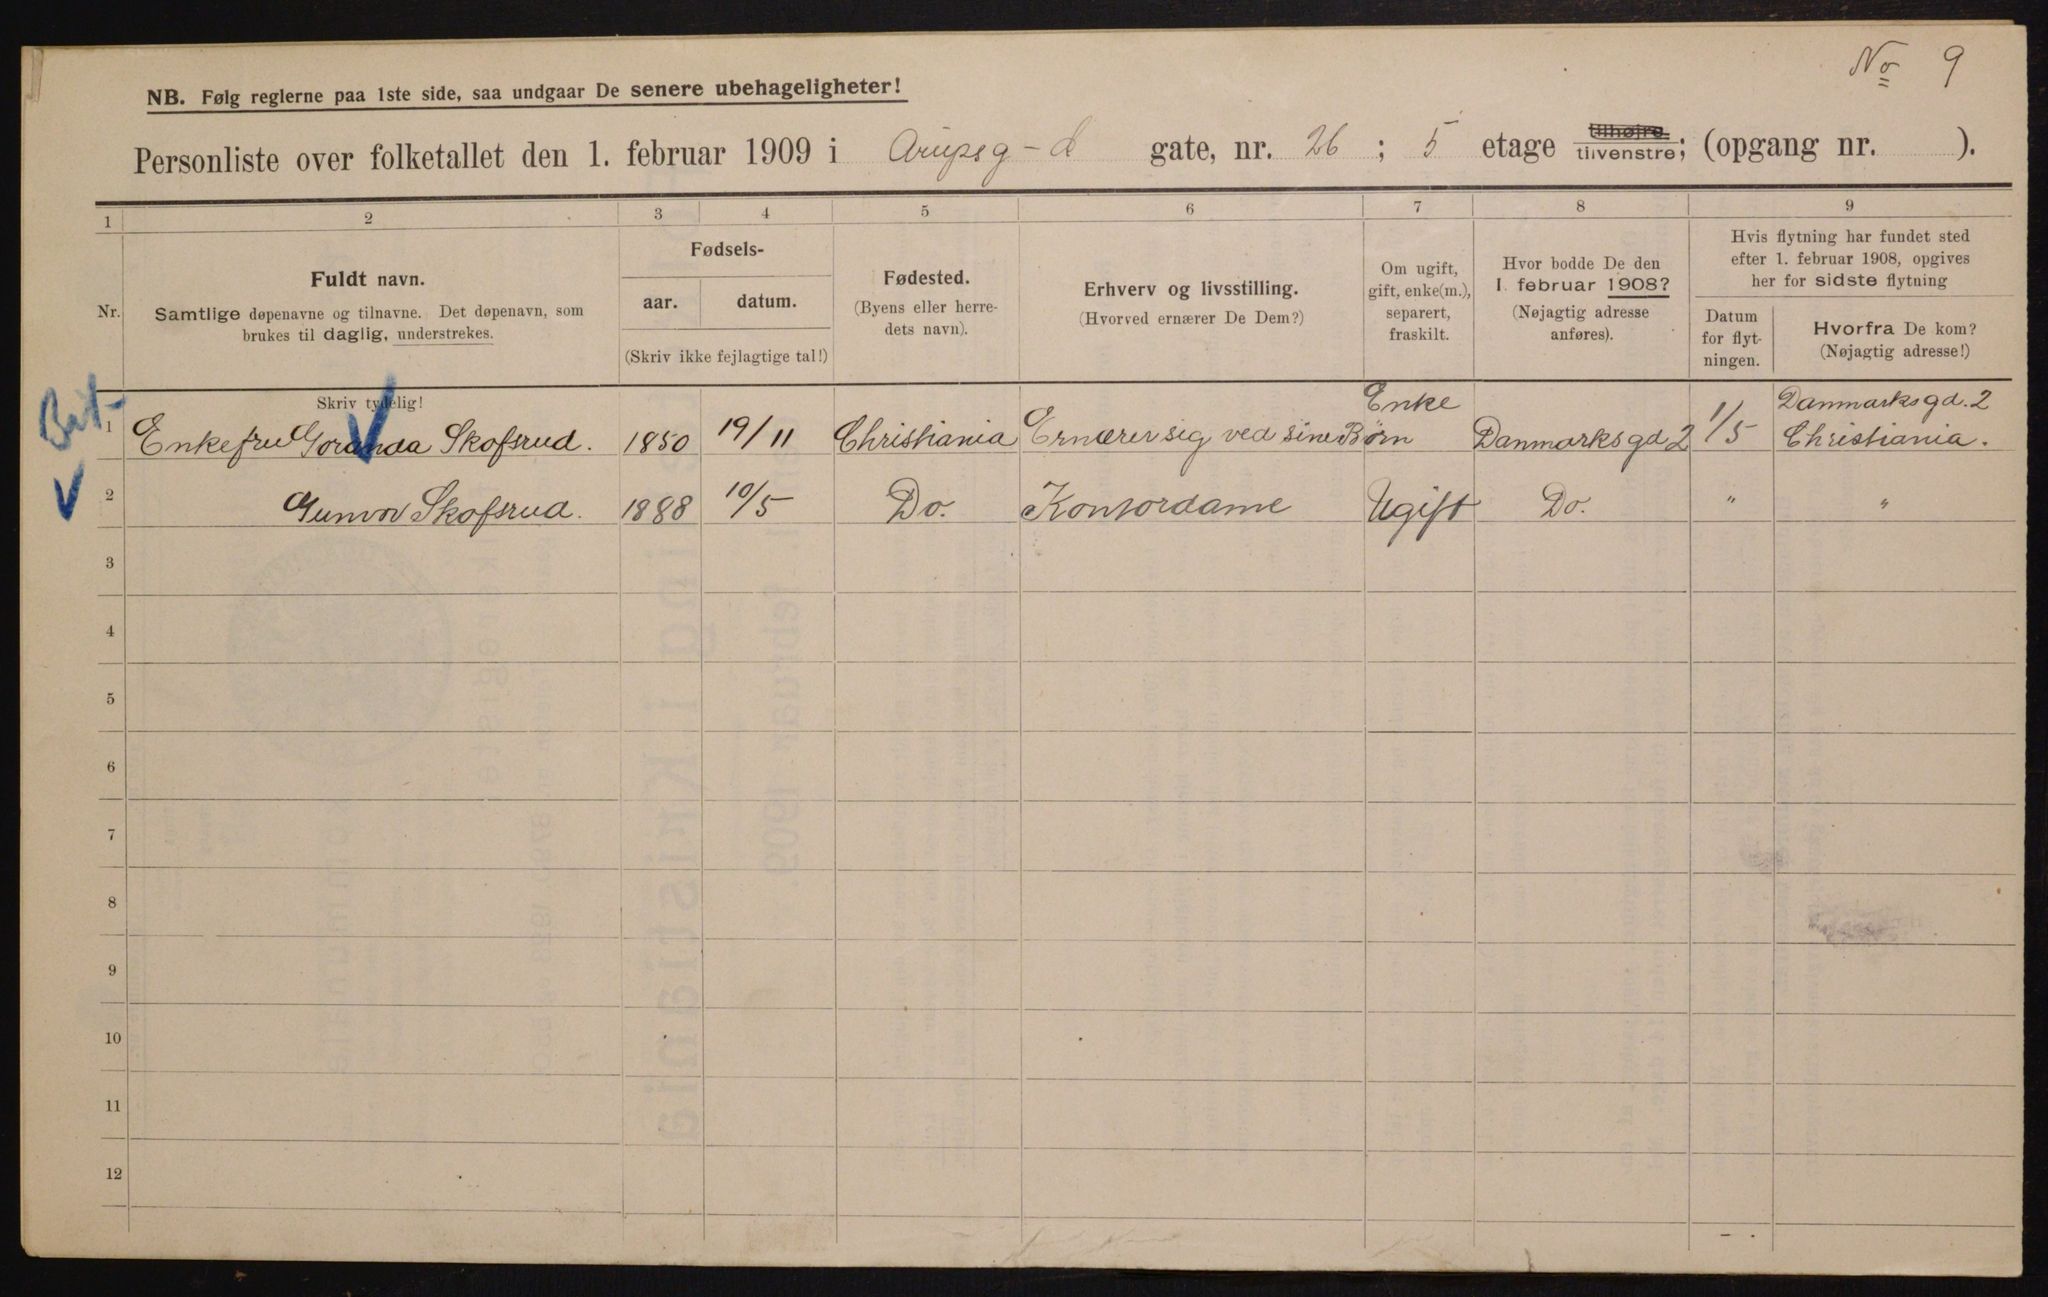 No 9
NB. Følg reglerne paa 1ste side, saa undgaar De senere ubehageligheter!
Personliste over folketallet den 1. februar 1909 i Arupsg-d gate, nr. 26; 5 etage tilhøjre tilvenstre; (opgang nr. ).
1 2 3 4 5 6 7 8 9
Nr.
Fuldt navn.
Samtlige døpenavne og tilnavne. Det døpenavn, som
brukes til daglig, understrekes.
Fødsels-
aar. datum.
(Skriv ikke fejlagtige tal!)
Fødested.
(Byens eller herre-
dets navn).
Erhverv og livsstilling.
(Hvorved ernærer De Dem?)
Om ugift,
gift, enke(m.),
separert,
fraskilt.
Hvor bodde De den
1. februar 1908?
(Nøjagtig adresse
anføres).
Hvis flytning har fundet sted
efter 1. februar 1908, opgives
her for sidste flytning
Datum
for flyt-
ningen.
Hvorfra De kom?
(Nøjagtig adresse!)
Skriv tydelig!
1 Enkefru Goranda Skofsrud. 1850 19/11 Christiania Ernærer sig ved sine Børn Enke Danmarksgd 2 1/5 Danmarksgd. 2
Christiania.
2 Gunvor Skofsrud. 1888 10/5 Do. Kontordame Ugift Do. " "
3
4
5
6
7
8
9
10
11
12